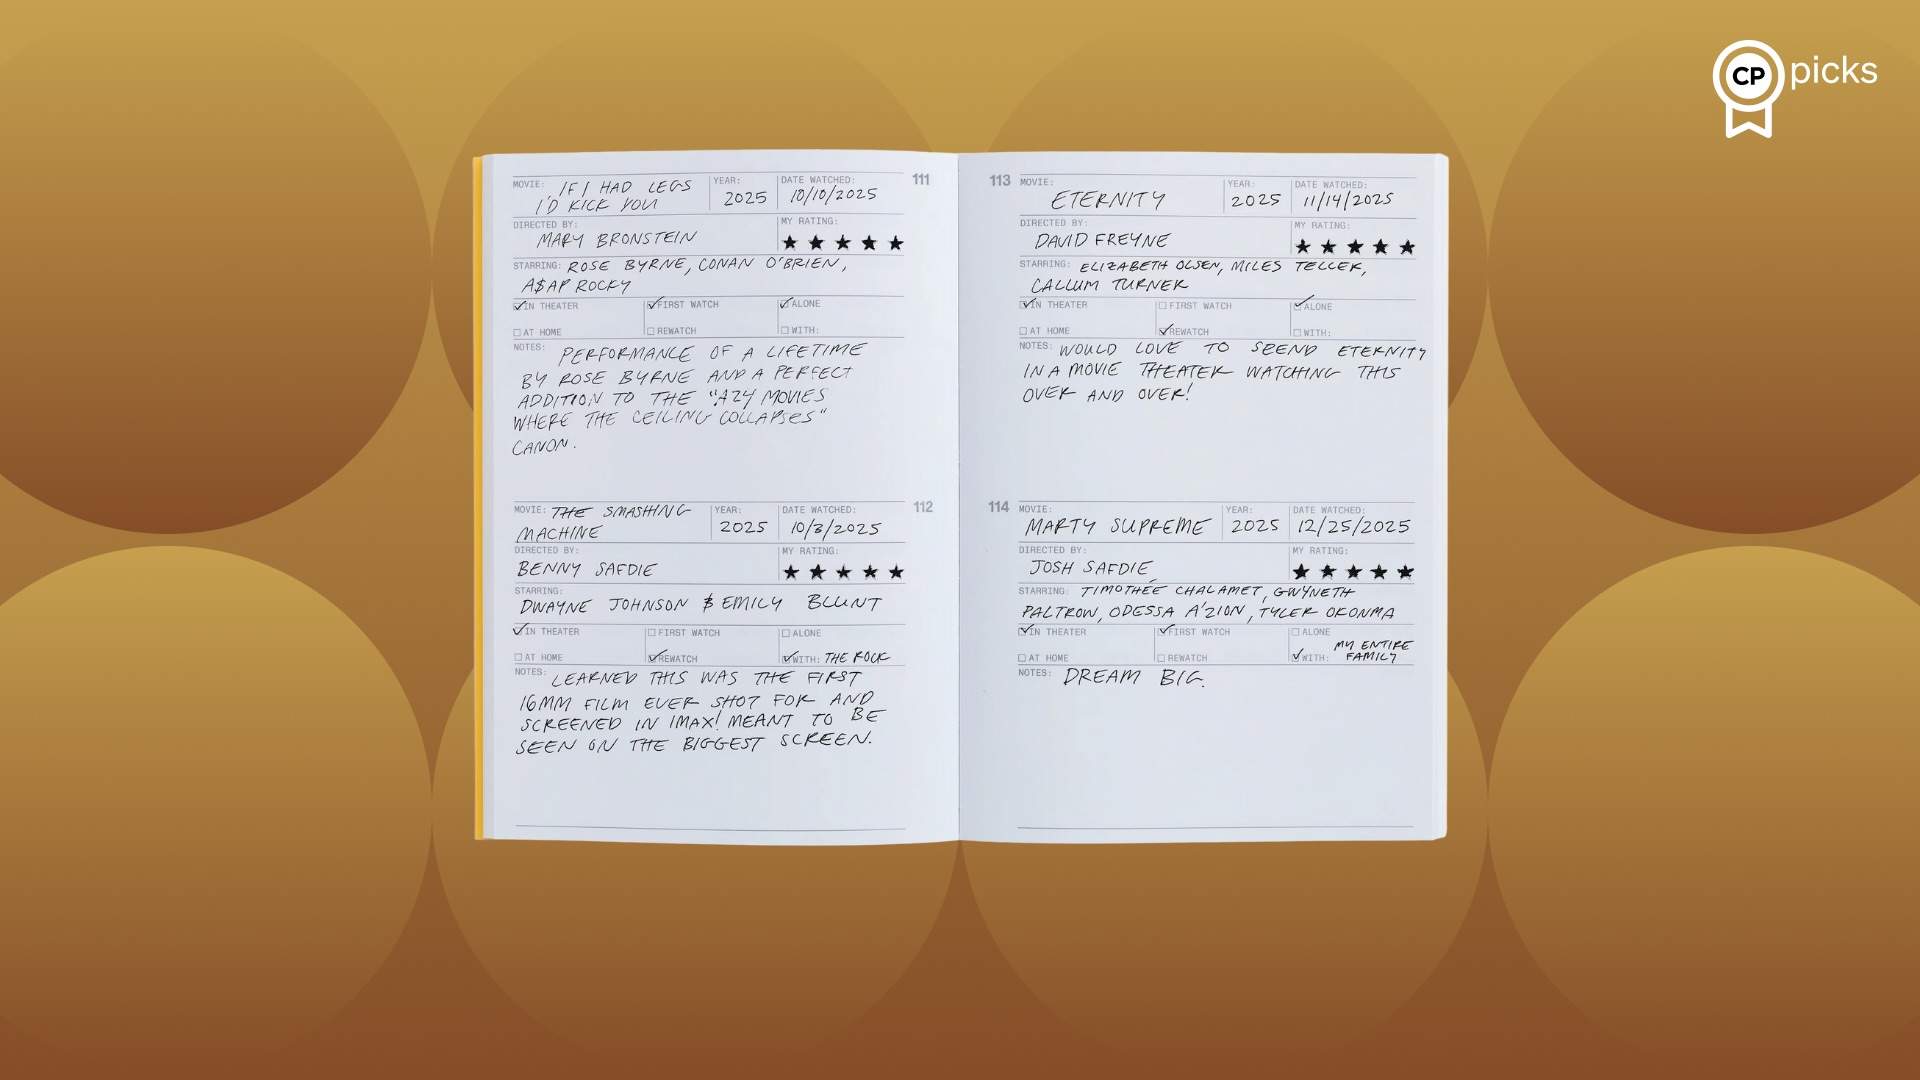 CP picks
111
MOVIE: IF I HAD LEGS
I'D KICK YOU
YEAR: 2025
DATE WATCHED: 10/10/2025
DIRECTED BY: MARY BRONSTEIN
MY RATING: ★ ★ ★ ★ ★
STARRING: ROSE BYRNE, CONAN O'BRIEN,
A$AP ROCKY
IN THEATER
FIRST WATCH
ALONE
AT HOME
REWATCH
WITH:
NOTES: PERFORMANCE OF A LIFETIME
BY ROSE BYRNE AND A PERFECT
ADDITION TO THE "A24 MOVIES
WHERE THE CEILING COLLAPSES"
CANON.
112
MOVIE: THE SMASHING
MACHINE
YEAR: 2025
DATE WATCHED: 10/3/2025
DIRECTED BY: BENNY SAFDIE
MY RATING: ★ ★ ★ ★ ★
STARRING:
DWAYNE JOHNSON & EMILY BLUNT
IN THEATER
FIRST WATCH
ALONE
AT HOME
REWATCH
WITH: THE ROCK
NOTES: LEARNED THIS WAS THE FIRST
16MM FILM EVER SHOT FOR AND
SCREENED IN IMAX! MEANT TO BE
SEEN ON THE BIGGEST SCREEN.
113
MOVIE: ETERNITY
YEAR: 2025
DATE WATCHED: 11/14/2025
DIRECTED BY: DAVID FREYNE
MY RATING: ★ ★ ★ ★ ★
STARRING: ELIZABETH OLSEN, MILES TELLER,
CALLUM TURNER
IN THEATER
FIRST WATCH
ALONE
AT HOME
REWATCH
WITH:
NOTES: WOULD LOVE TO SPEND ETERNITY
IN A MOVIE THEATER WATCHING THIS
OVER AND OVER!
114
MOVIE: MARTY SUPREME
YEAR: 2025
DATE WATCHED: 12/25/2025
DIRECTED BY: JOSH SAFDIE
MY RATING: ★ ★ ★ ★ ★
STARRING: TIMOTHÉE CHALAMET, GWYNETH
PALTROW, ODESSA A'ZION, TYLER OKONMA
IN THEATER
FIRST WATCH
ALONE
AT HOME
REWATCH
WITH: MY ENTIRE
FAMILY
NOTES: DREAM BIG.